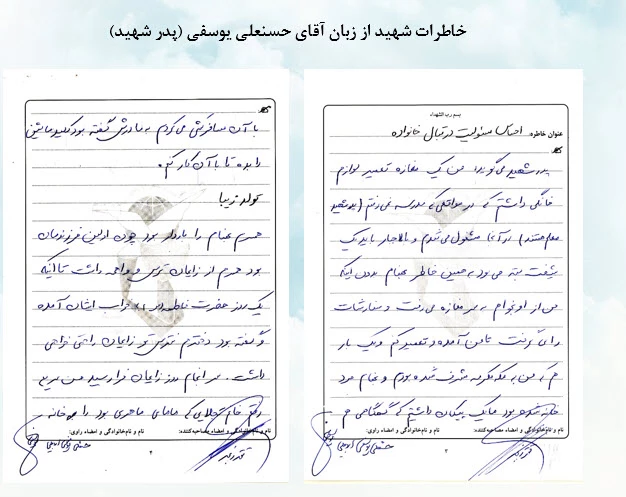 خاطرات شهید از زبان آقای حسنعلی یوسفی (پدر شهید)
بسم رب الشهداء
عنوان خاطره: احساس مسئولیت در قبال خانواده
پدر شهید می گوید: من یک مغازه تعمیر لوازم
خانگی داشتم که در مواقعی که مدرسه می رفتم (پدر شهید
معلم هستند) در آنجا مشغول می شدم و بالاجبار باید یک
شیفت بسته می بود به همین خاطر بهنام بدون اینکه
من از او بخواهم به سر مغازه می رفت و سفارشات
را می گرفت تا من آمده و تعمیر کنم و یک بار
هم که من به مکه مکرمه مشرف شده بودم و بهنام مرد
خانه شده بود ما یک پیکان داشتم که گهگاهی هم
نام و نام‌خانوادگی و امضاء مصاحبه‌کننده:
نام و نام‌خانوادگی و امضاء راوی:
۲
با آن مسافرکشی می کردم به مادرش گفته بود کلید ماشین
را بده تا با آن کار کنم.
تولد زیبا
همسرم بهنام را باردار بود چون اولین فرزندمان
بود همسرم از زایمان ترس و واهمه داشت تا اینکه
یک روز حضرت فاطمه زهرا خواب ایشان آمده
و گفته بود دخترم نترس تو زایمان راحتی خواهی
داشت. سرانجام روز زایمان فرا رسید من سریع
رفتم خانم که مامای ماهری بود را به خانه
نام و نام‌خانوادگی و امضاء مصاحبه‌کننده:
نام و نام‌خانوادگی و امضاء راوی:
۲